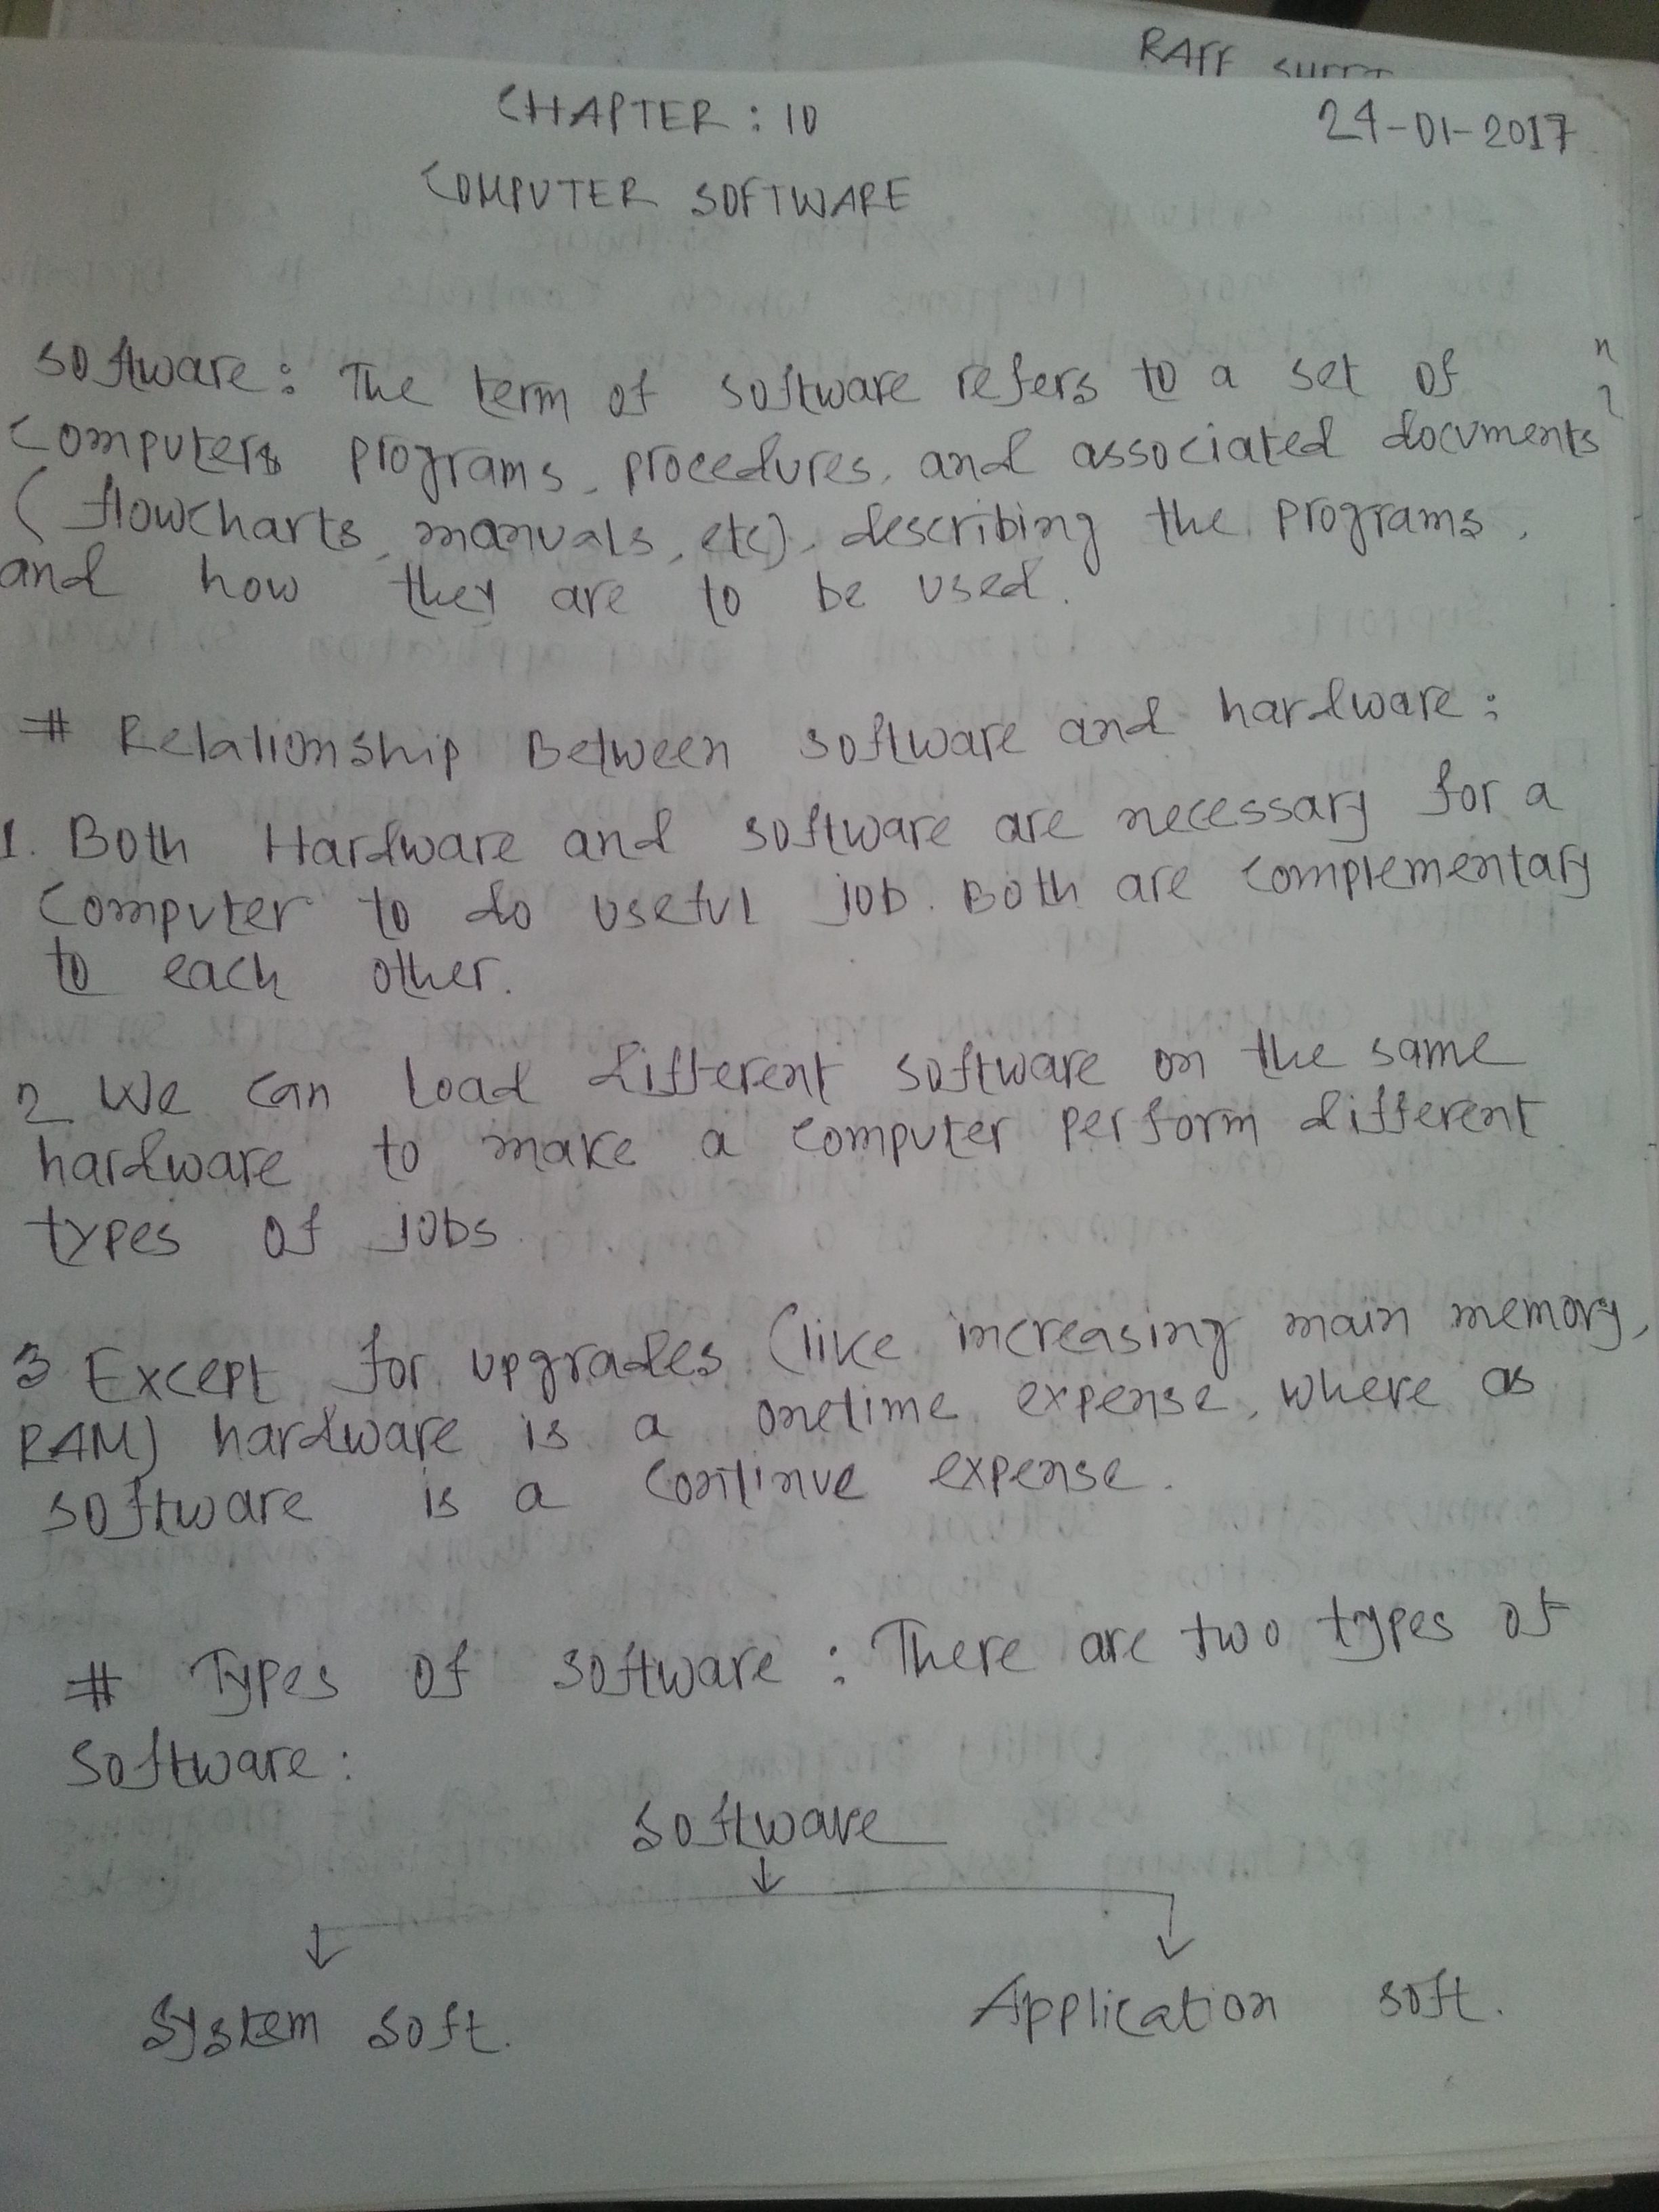 RAFF
CHAPTER : 10
24-01-2017
COMPUTER SOFTWARE
software : The term of software refers to a set of
Computers programs, procedures, and associated documents
( flowcharts, manuals, etc), describing the programs,
and how they are to be used.
# Relationship Between software and hardware :
1. Both Hardware and software are necessary for a
Computer to do useful job. Both are complementary
to each other.
2 We can load different software on the same
hardware to make a computer perform different
types of jobs.
3 Except for upgrades (like increasing main memory,
RAM) hardware is a onetime expense, where as
software is a continue expense.
# Types of software : There are two types of
Software :
Software
System soft.
Application soft.